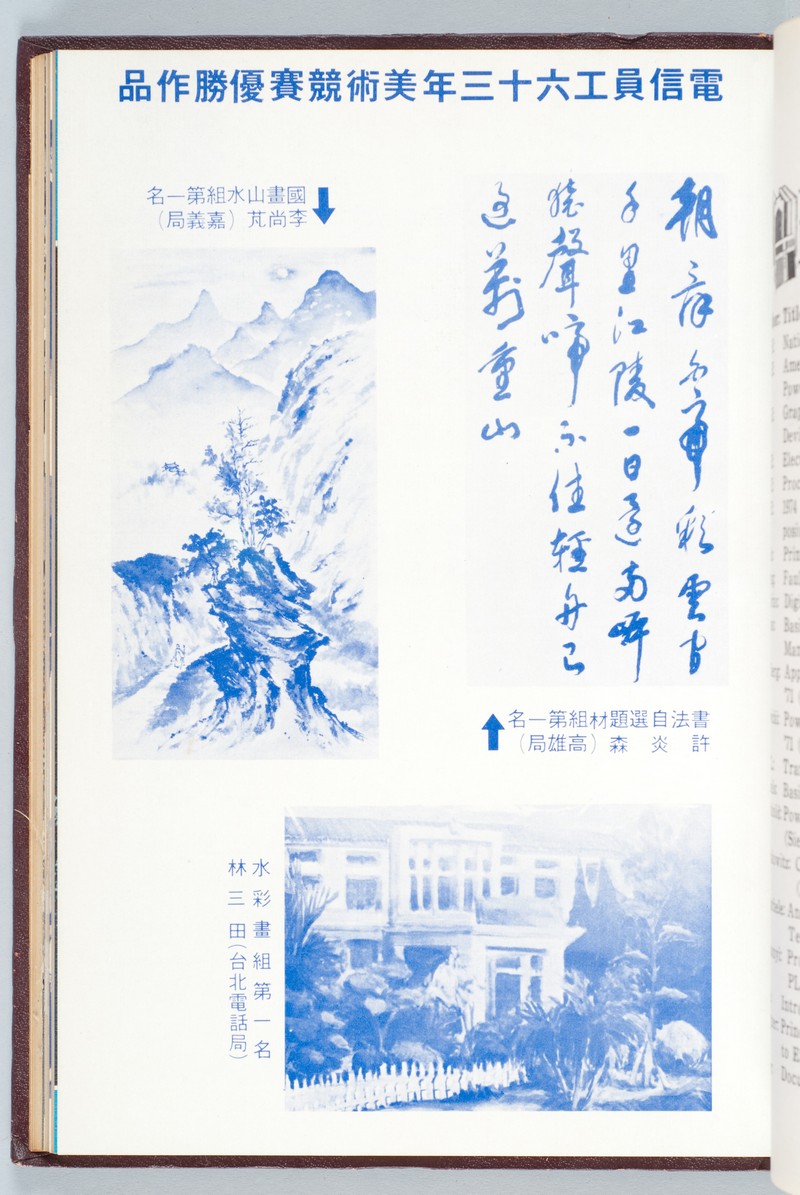 電信員工六十三年美術競賽優勝作品
朝辭白帝彩雲間
千里江陵一日還兩岸
猿聲啼不住輕舟已
過萬重山
書法自選題材組第一名
許炎森（高雄局）
國畫山水組第一名
李尚芃（嘉義局）
水彩畫組第一名
林三田（台北電話局）